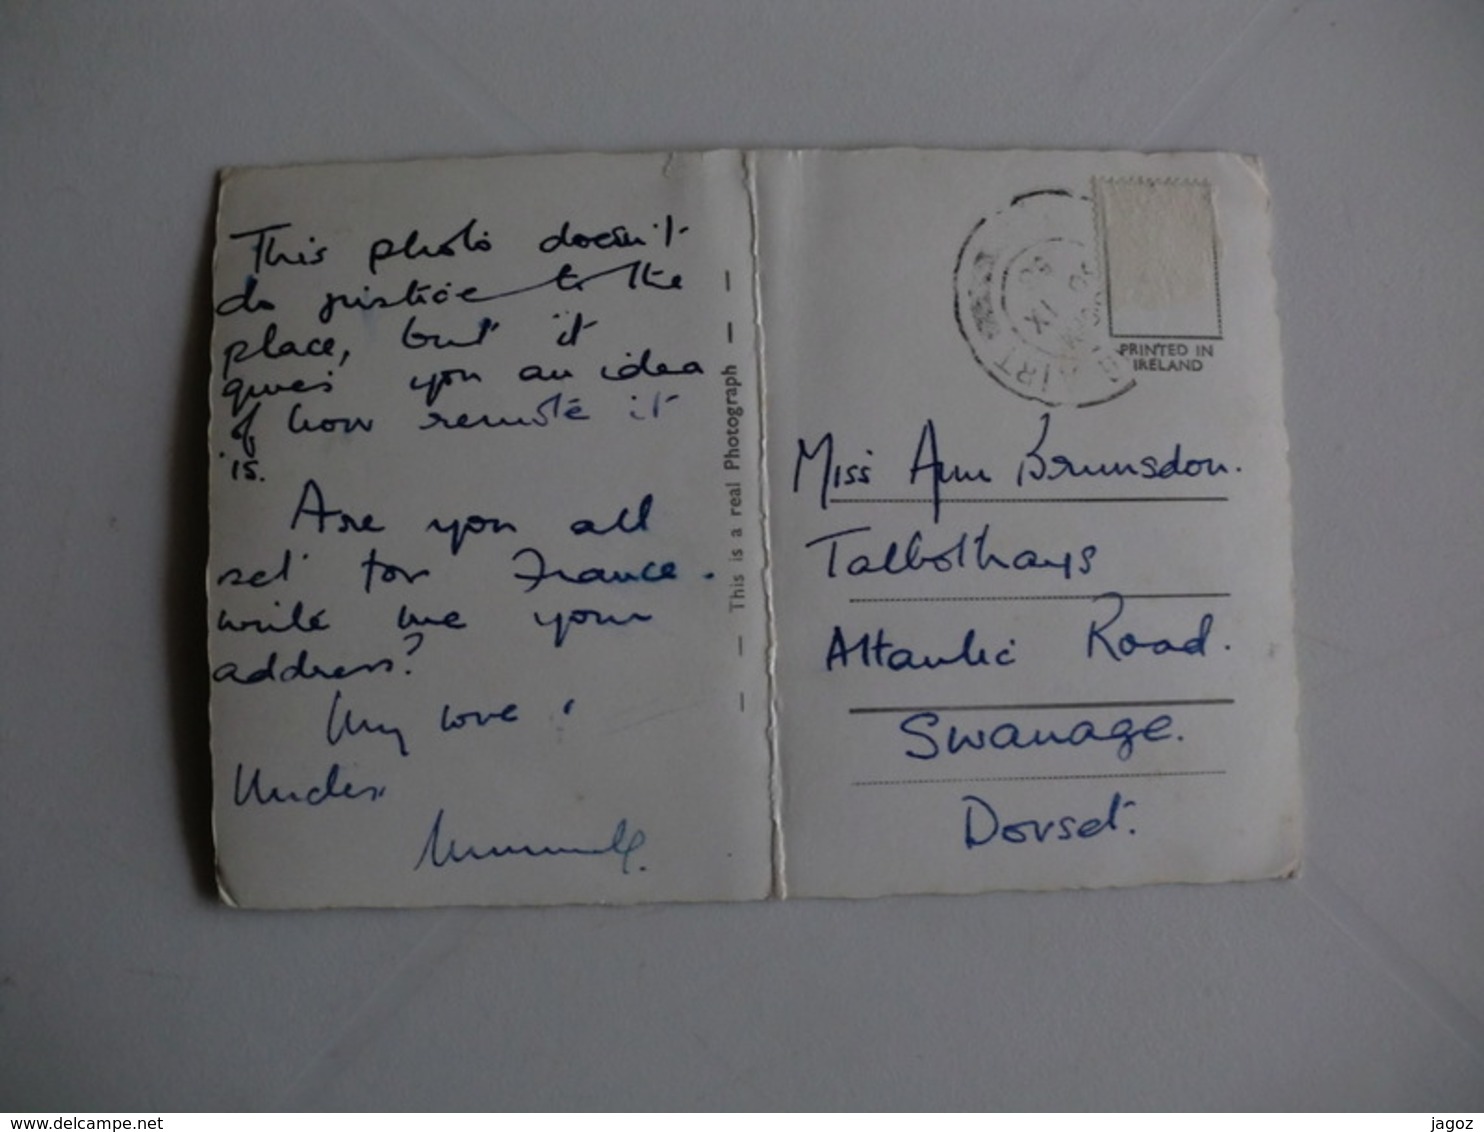 This photo doesn't
do justice to the
place, but it
gives you an idea
of how remote it
is.
Are you all
set for France.
write me your
address?
My love,
This is a real Photograph
IX
PRINTED IN
IRELAND
Miss Ann Brunsdon.
Talbothays
Atlantic Road.
Swanage.
Dorset.
www.delcampe.net
jagoz